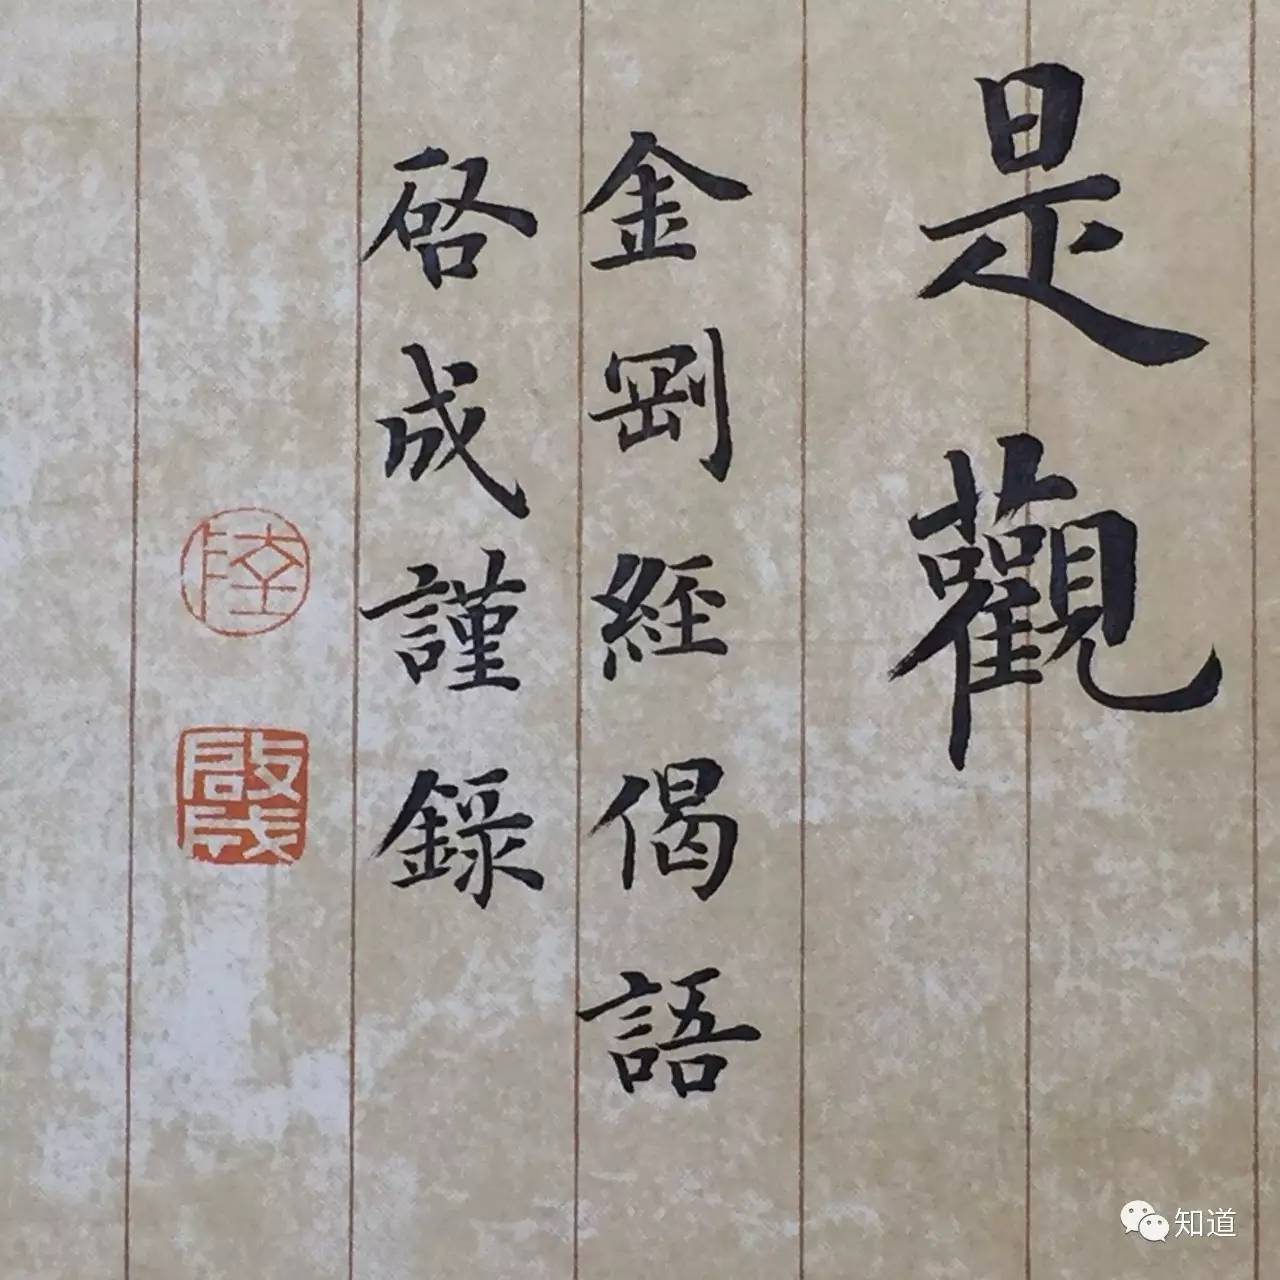 是觀
金剛經偈語
啓成謹錄
陸
啟成
知道